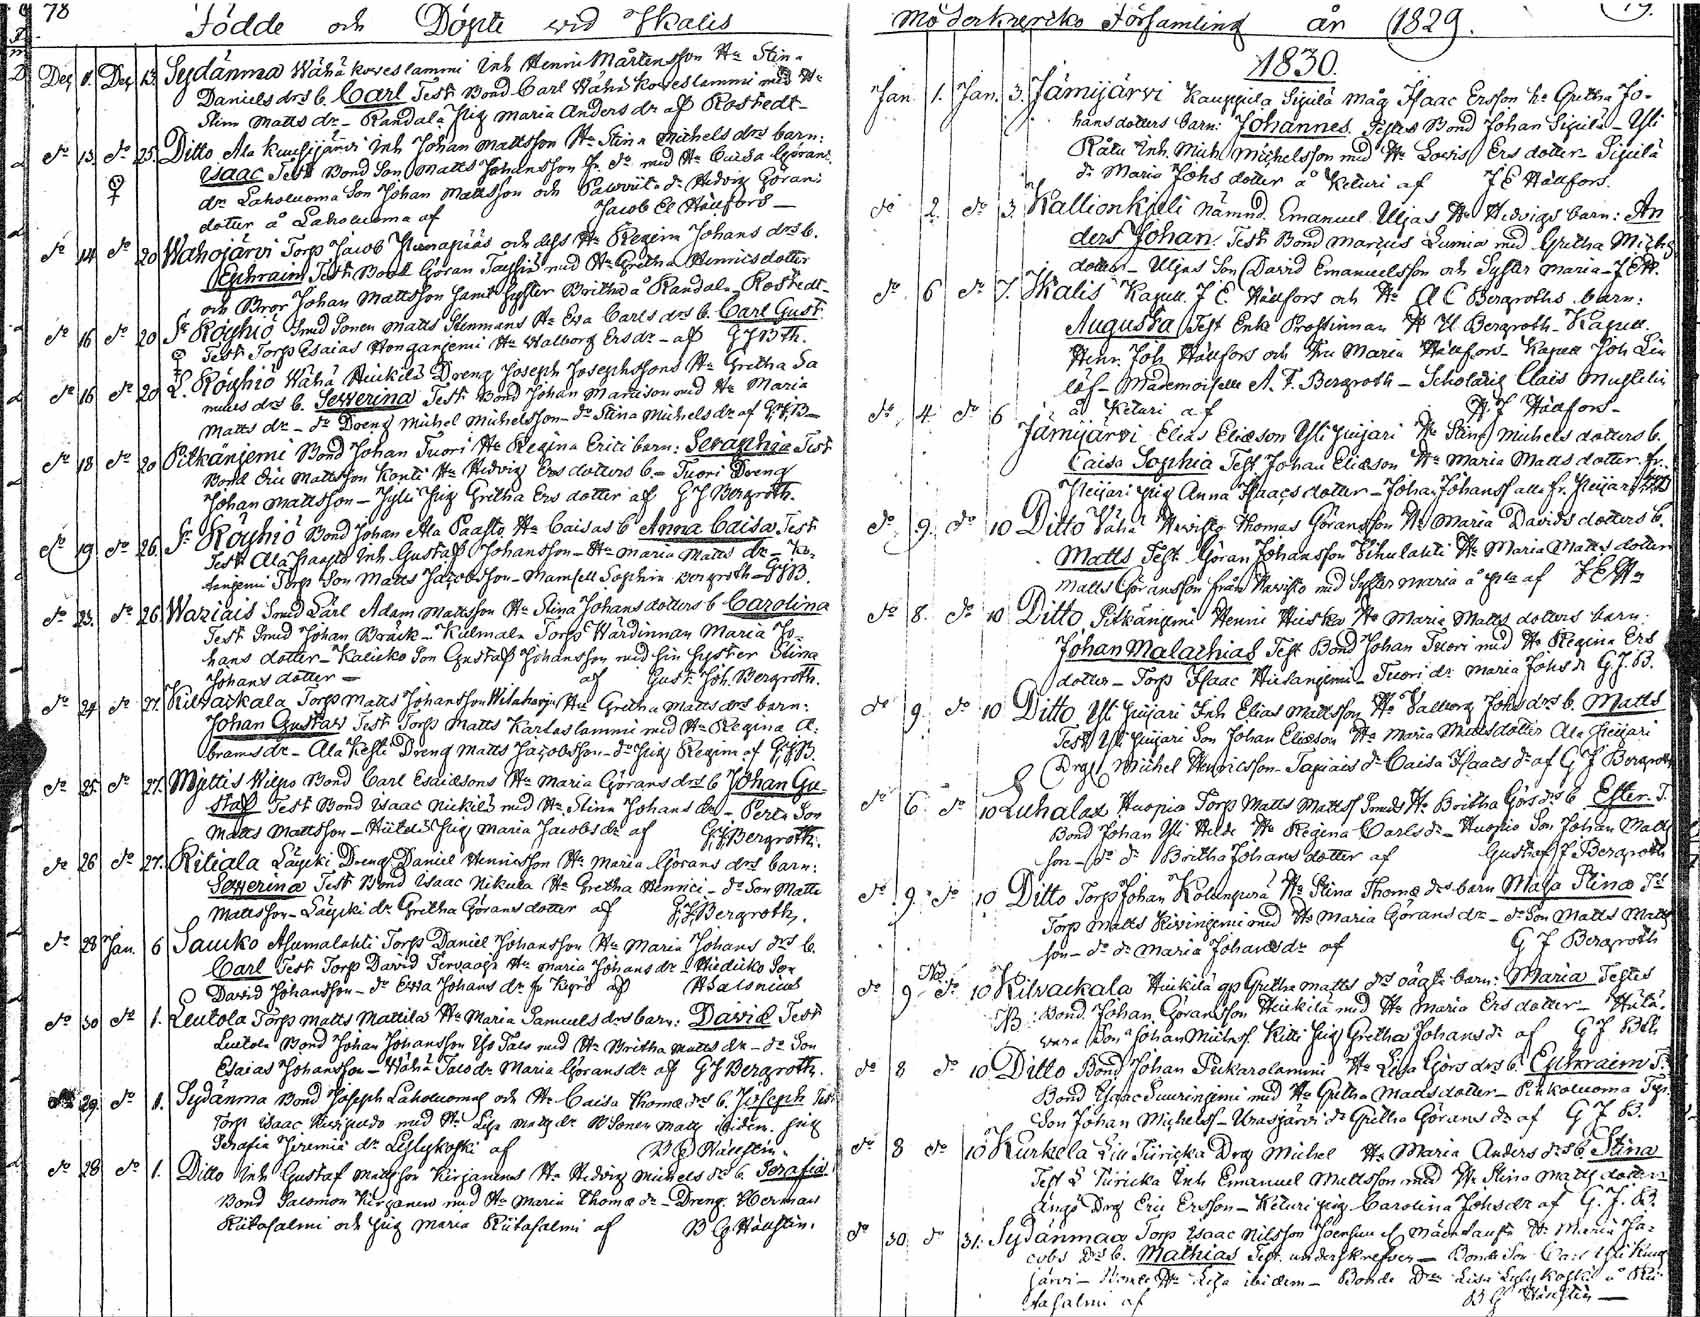 78 Födde och Döpte wid Ikalis
Dec 11. Dec 13 Sydänmaa Wähä koweslammi Inh Henric Mårtensson Hu Stina
Daniels drs b. Carl Test Bond Carl Wähä koweslammi med Hu
Stina Matts dr - Randala Pig Maria Anders dr af Roshedt -
do 13. do 25. Ditto Ala kuusijärvi Inh Johan Mattsson Hu Stina Michels drs barn:
Isaac Test Bond Son Matts Johansson fr do med Hu Caisa Görans
dr Laholuoma Son Johan Mattsson och dr Hedvig Görans
dotter å Laholuoma af Jacob El Hällfors -
do 14 do 20 Wahojärvi Torp Jacob och dess Hu Regina Johans drs b.
Ephraim Test Göran med Hu Gretha Henricsdotter
och Bror Johan Mattsson samt Syster Britha å Randala - Roshedt -
do 16 do 20 Sr Röyhiö Smed Sonen Matts Stenmans Hu Ewa Carls drs b. Carl Gust.
Test Torp Esaias Honganjemi Hu Walborg Ers dr - af G J Bth.
do 16 do 20 L. Röyhiö Wähä Heickilä Dreng Joseph Josephssons Hu Gretha Sa
muels drs b. Sewerina Test Bond Johan med Hu Maria
Matts dr - dr Dreng Michel Michelsson - dr Stina Michels dr af G J B -
do 18 do 20 Pitkänjemi Bond Johan Tuori Hu Regina Erici barn: Seraphia Test
Bond Eric Mattsson Konti Hu Hedvig Ers dotters b. - Tuori Dreng
Johan Mattsson - Jyli Pig Gretha Ers dotter af G J Bergroth.
do 19. do 26. Sr Röyhiö Bond Johan Ala Paasto Hu Caisas b Anna Caisa. Test
Test Ala Paasto Inh Gustaf Johansson - Hu Maria Matts dr -
Torp Son Matts Jacobsson - Mamsell Sophia Bergroth - G J B.
do 23. do 26 Waziais Smed Lärl Adam Mattsson Hu Stina Johans dotters b Carolina
Test Smed Johan Bräck - Kulmala Torp Wärdinnan Maria Jo-
hans dotter - Kalicko Son Gustaf Johansson med sin Syster Stina
Johans dotter - af Gust. Joh. Bergroth.
do 24 do 27. Kilvackala Torp Matts Johansson Hu Gretha Matts drs barn:
Johan Gustav Test Torp Matts Karhaslammi med Hu Regina A.
brams dr - Ala Kesti Dreng Matts Jacobsson - dr Pig Regina af G J B.
do 25. do 27. Myttis Wiepo Bond Carl Esaiæsons Hu Maria Görans drs b Johan Gu-
staf Test Bond Isaac Nickilä med Hu Stina Johans dr - Son
Matts Mattsson - Pig Maria Jacobs dr af G J Bergroth.
do 26 do 27. Kiliala Läycki Dreng Daniel Henricsson Hu Maria Görans drs barn:
Sewerina Test Bond Isaac Nikula Hu Gretha Henrici - dr Son Matts
Mattsson - Läycki dr Gretha Görans dotter af G J Bergroth.
do 28 Jan. 6 Sawko Asumalahti Torp Daniel Johansson Hu Maria Johans drs b.
Carl Test Torp David Hu Maria Johans dr - Hiedicko Son
David Johansson - dr Ewa Johans dr fr Kyrö af H Salonius
do 30 do 1. Leutola Torp Matts Mattila Hu Maria Samuels drs barn: David Test
Leutola Bond Johan Johansson Iso Talo med Hu Britha Matts dr - dr Son
Esaias Johansson - Wähä Talo dr Maria Görans dr af G J Bergroth.
29. do 1. Sydänma Bond Joseph Laholuoma och Hu Caisa Thomæ drs b. Joseph Test
Torp Isaac med Hu Lisa Matts dr B Sonen Matts ibidem. Pig
Serafia Jeremiæ dr Lylykoski af B G Hällstin.
do 28 do 1. Ditto Inh Gustaf Mattsson Kirjanens Hu Hedvig Michels drs b. Serafia
Bond Salomon Kirjanen med Hu Maria Thomæ dr - Dreng Herman
Riitasalmi och Pig Maria Riitasalmi af B G Hällstin.
Moderkyrko Församling år 1829. 79.
1830.
Jan. 1. Jan. 3. Jämijärvi Kauppila Sipilä Måg Isaac Ersson hu Gretha Jo-
hans dotters barn: Johannes. Testes Bond Johan Sipilä - Yli
Rätu Inh. Mich. Michelsson med Hu Lovis Ers dotter - Sipilä
dr Maria Johs dotter å Keturi af J E Hällfors.
do 2. do 3. Kallionkieli Nämnd. Emanuel Uljas Hu Hedvigs barn: An
ders Johan. Test Bond Marcus Lumia med Gretha Michs
dotter - Uljas Son David Emanuelsson och Syster Maria - J E H.
do 6 do 7. Ikalis Kapell. J E Hällfors och Hu A C Bergroths barn:
Augusta Test Enke Prostinnan H U Bergroth - Kapell.
Henr. Joh. Hällfors och Fru Maria Hällfors - Kapell Joh Lin
löf - Mademoiselle A. F. Bergroth - Scholarig Claës Mustelin
å Keturi af H J Hällfors -
do 4 do 6 Jämijärvi Elias Eliæson Yli Peijari Hu Stina Michels dotters b.
Caisa Sophia Test Johan Eliæson Hu Maria Matts dotter. fr.
Peijari Pig Anna Isaacs dotter - Johan Johanss alla fr. Peijari
do 9. do 10 Ditto Vähä Thomas Göransson Hu Maria Davids dotters b.
Matts Test Göran Johansson Vihulahti Hu Maria Matts dotter
Matts Göransson från med Syster Maria å af J E H
do 8. do 10 Ditto Pitkänjemi Henric Heiska Hu Maria Matts dotters barn:
Johan Malachias Test Bond Johan Tuori med Hu Regina Ers
dotter - Torp Isaac Hietanjemi - Tuori dr Maria Johs dr G. J. B.
do 9. do 10 Ditto Yli Peijari Inh Elias Mattsson Hu Valborg Johs drs b. Matts
Test Yli Peijari Son Johan Eliæson Hu Maria Matts dotter Ala Peijari
Drg Michel Henricsson - Tapiais dr Caisa Isaacs dr af G J Bergroth
do 6 do 10 Luhalax Huopio Torp Matts Mattss Smeds Hu Britha Görs drs b Ester T.
Bond Johan Yli Hu Regina Carls dr - Huopio Son Johan Matts
son - do dr Britha Johans dotter af Gustaf J Bergroth
do 9. do 10 Ditto Torp Johan Hu Stina Thomæ drs barn Maja Stina Tt
Torp Matts Kivinjemi med Hu Maria Görans dr - dr Son Matts Matts
son - do dr Maria Johans dr af G J Bergroth
do 9 NB do 10 Kilvackala Heikilä qp Gretha Matts drs oägta barn: Maria Testes
NB: Bond. Johan Göransson Heikilä med Hu Maria Ers dotter -
wara Son Johan Michss. Kitti Pig Gretha Johans dr af G J Bth
do 8 do 10 Ditto Bond Johan Pukaralammi Hu Lisa Görs drs b. Ephraim T.
Bond Isaac Suurinjemi med Hu Gretha Mattsdotter - Torp.
Son Johan Michelss - dr Gretha Görans dr af G J B.
do 8 do 10 Kurkela Lill Tiiricka Drg Michel Hu Maria Anders drs b Stina
Test L Tiiricka Inh Emanuel Mattsson med Hu Stina Matts dotter -
Drg Eric Ersson - Keturi Pig Carolina Johs dr af G. J. B.
do 30. do 31. Sydänmaa Torp Isaac Nilsson Joensuu Hu Maria Ja-
cobs drs b. Mathias Test. underskrefven - Bonde Son Carl Yli Kuus
järvi - Hu Lisa ibidem - Bonde Dr Lisa Lylykoski å Rii
tasalmi af B G Hällstin -